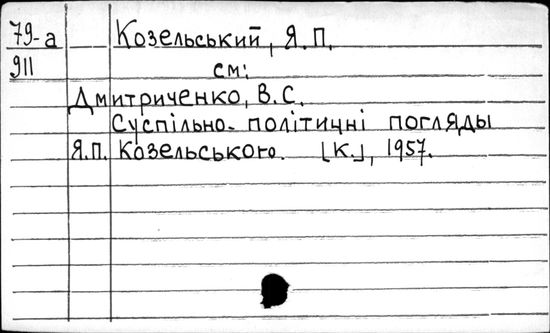 79-а Козельський, Я.П.
911 см:
Дмитриченко, В.С.
Суспільно-політичні погляды
Я.П. Козельського. [К.], 1957.